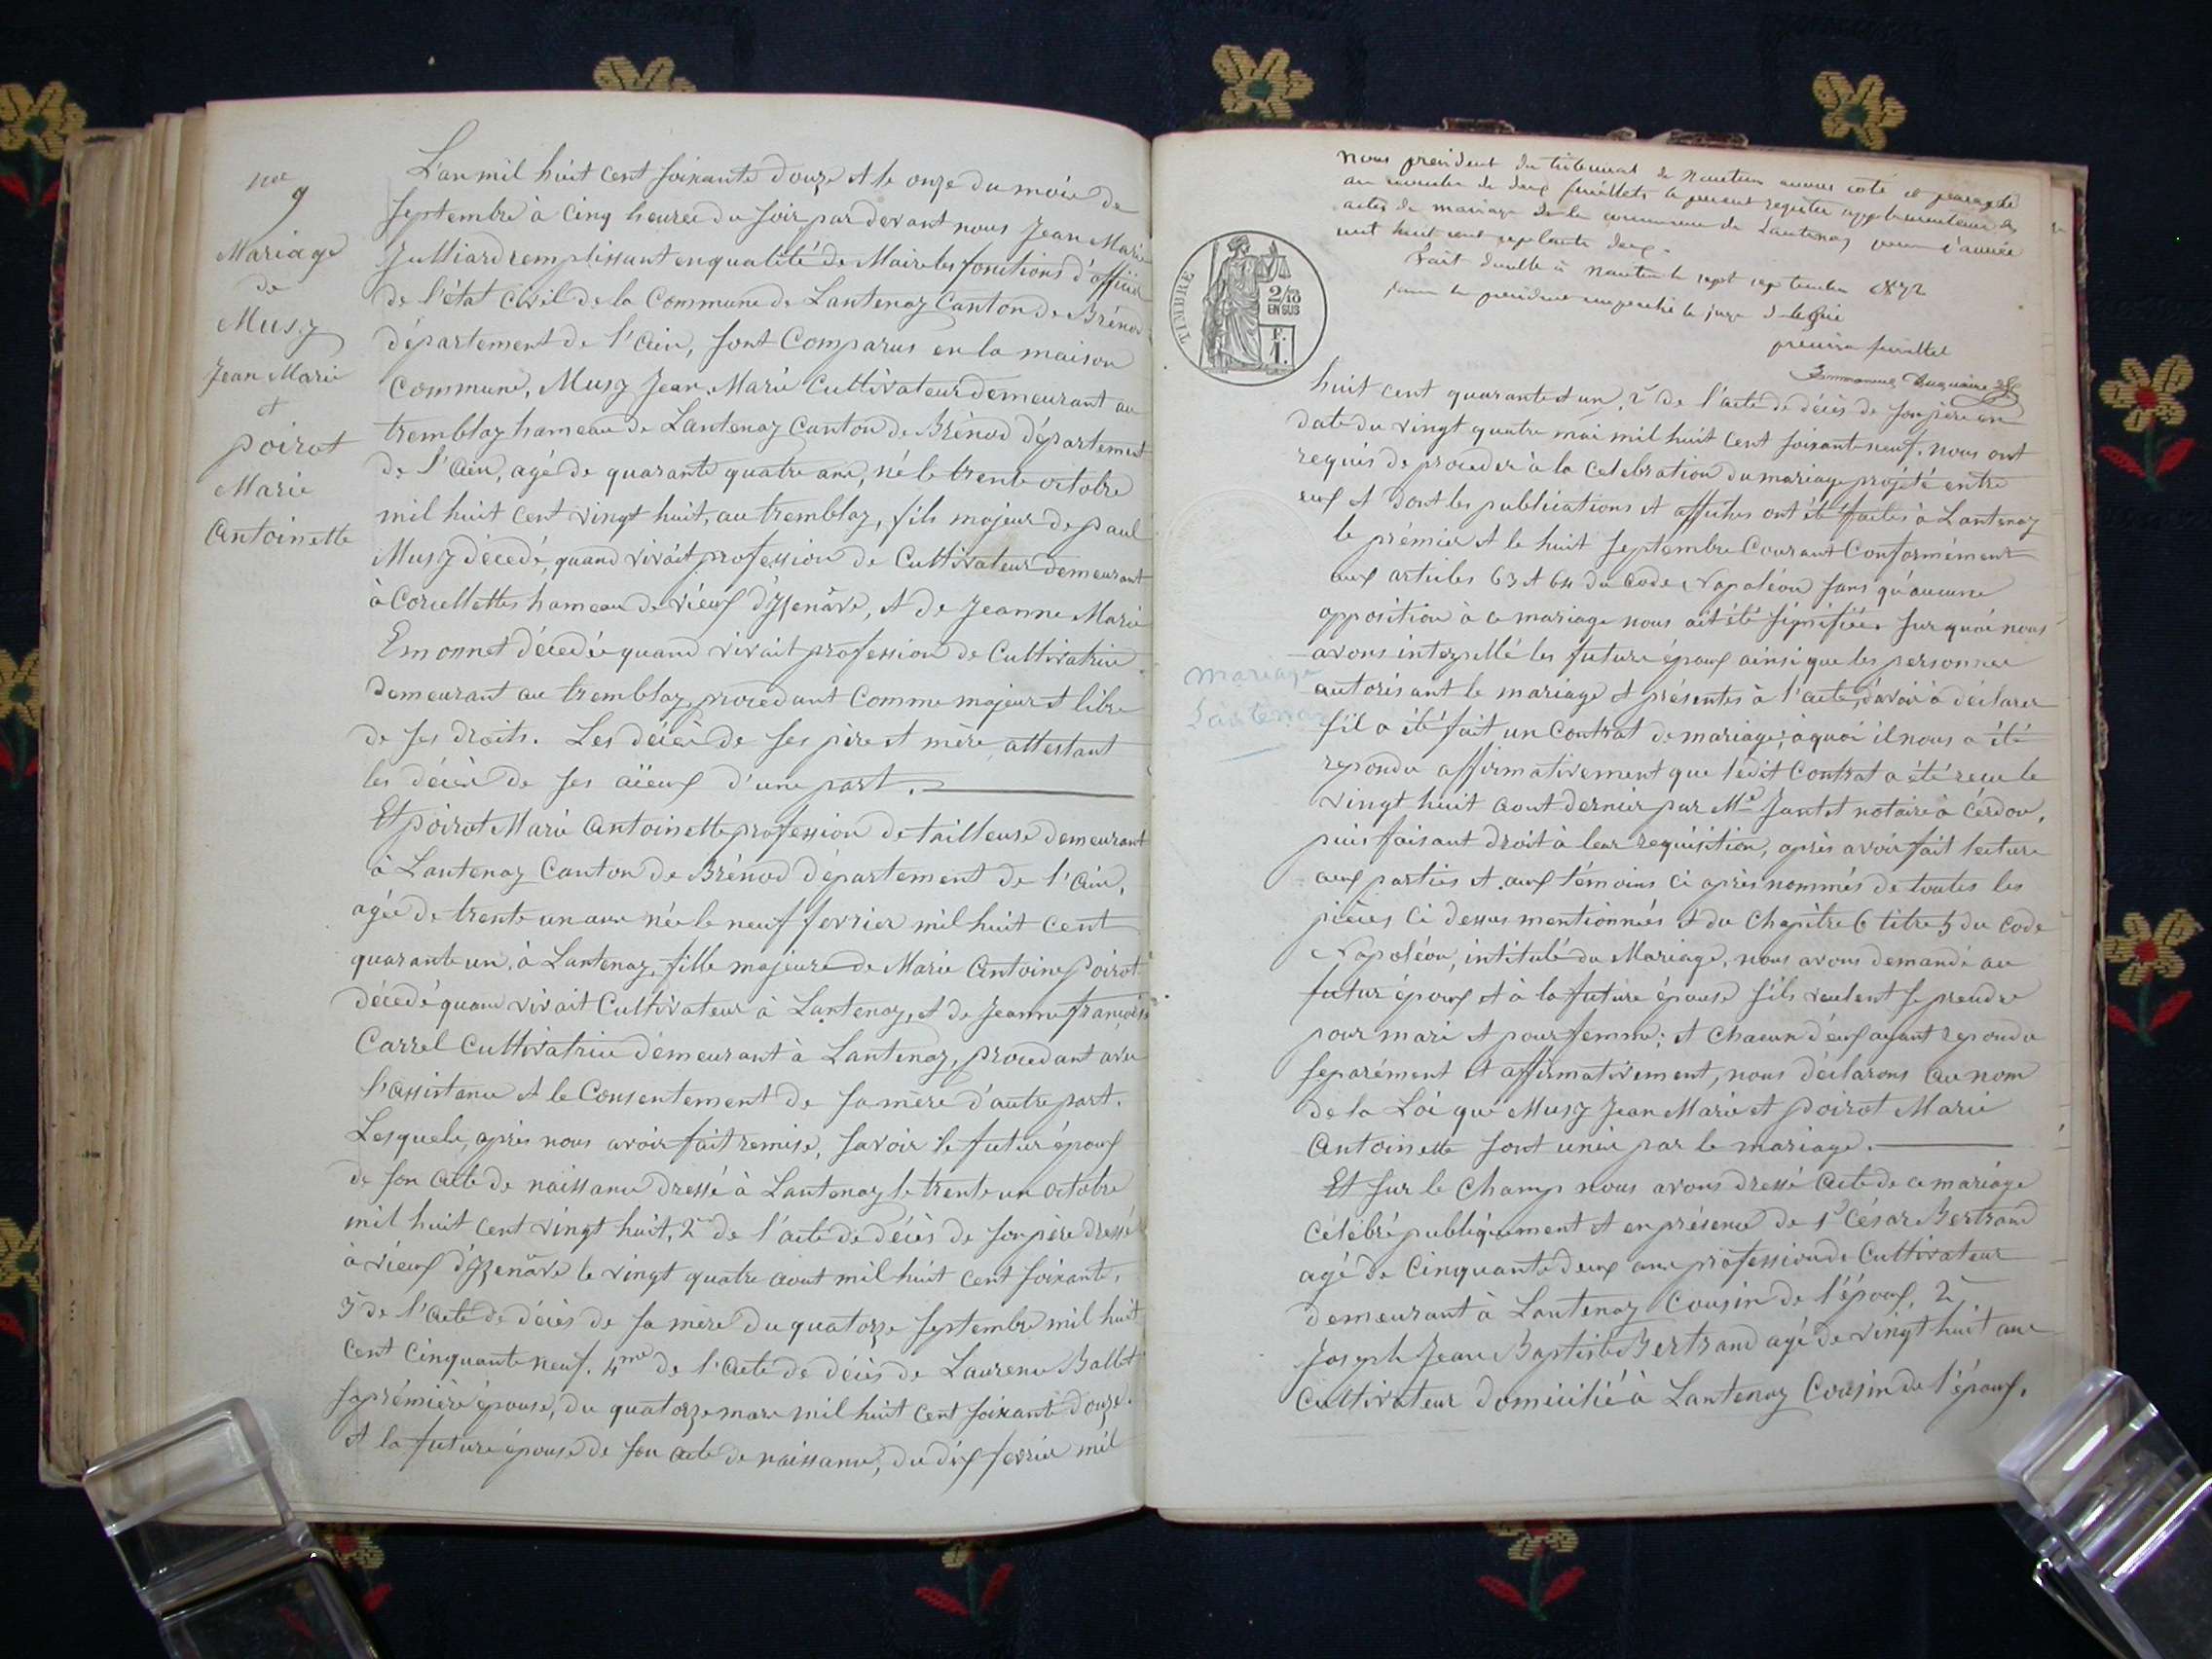 9
Mariage
de
Musy
Jean Marie
et
poirot
Marie
Antoinette
L'an mil huit cent soixante douze et le onze du mois de
septembre à cinq heures du soir par devant nous Jean Marie
Julliard remplissant en qualité de Maire les fonctions d'officier
de l'état civil de la Commune de Lantenay Canton de Brénod
département de l'ain, sont Comparus en la maison
Commune, Musy Jean Marie Cultivateur demeurant au
tremblay hameau de Lantenay Canton de Brénod département
de l'ain, agé de quarante quatre ans, né le trente octobre
mil huit cent vingt huit, au tremblay, fils majeur de paul
Musy décedé, quand vivait profession de Cultivateur demeurant
à Corcellettes hameau de vieux d'Izenâve, et de Jeanne Marie
Emonnet décedée quand vivait profession de Cultivatrice
demeurant au tremblay procedant Comme majeur et libre
de ses droits. Les décès de ses père et mère attestant
les décès de ses aïeux d'une part.
Et poirot Marie Antoinette profession de tailleuse demeurant
à Lantenay Canton de Brénod département de l'ain,
agée de trente un ans née le neuf fevrier mil huit cent
quarante un, à Lantenay, fille majeure de Marie Antoine poirot
décedé quand vivait Cultivateur à Lantenay, et de Jeanne françoise
Carrel Cultivatrice demeurant à Lantenay, procedant avec
l'assistance et le Consentement de sa mère d'autre part.
Lesquels, après nous avoir fait remise, savoir le futur époux
de son acte de naissance dressé à Lantenay le trente un octobre
mil huit cent vingt huit, 2º de l'acte de décès de son père dressé
à vieux d'Izenâve le vingt quatre aout mil huit cent soixante,
3º de l'acte de décès de sa mère du quatorze septembre mil huit
cent cinquante neuf. 4me de l'acte de décès de Laurence Ballet
sa première épouse, du quatorze mars mil huit cent soixante douze.
et la future épouse de son acte de naissance, du dix fevrier mil
nous president du tribunal de Nantua avons coté et paraphé
au nombre de deux feuillets le present registre supplementaire des
actes de mariage de la commune de Lantenay pour l'année
mil huit cent soixante douze.
Fait double à Nantua le sept septembre 1872
pour le president empeché le juge delegué
premier feuillet
TIMBRE
2/10
EN SUS
F.
1.
huit cent quarante et un, 2º de l'acte de décès de son père en
date du vingt quatre mai mil huit cent soixante neuf. nous ont
requis de proceder à la celebration du mariage projété entre
eux et dont les publications et affiches ont été faites à Lantenay
le prémier et le huit septembre Courant Conformément
aux articles 63 et 64 du Code Napoléon sans qu'aucune
opposition à ce mariage nous ait été signifiée. sur quoi nous
avons interpellé les futurs époux ainsi que les personnes
autorisant le mariage et présentes à l'acte, d'avoir à déclarer
s'il a été fait un Contrat de mariage; à quoi il nous a été
repondu affirmativement que ledit Contrat a été reçu le
vingt huit aout dernier par Me Jantet notaire à Cerdon,
puis faisant droit à leur requisition, après avoir fait lecture
aux parties et aux témoins ci après nommés de toutes les
pièces ci dessus mentionnées et du Chapitre 6 titre 5 du Code
Napoléon, intitulé du Mariage, nous avons demandé au
futur époux et à la future épouse s'ils veulent se prendre
pour mari et pour femme; et chacun d'eux ayant repondu
separément et affirmativement, nous déclarons au nom
de la Loi que Musy Jean Marie et poirot Marie
Antoinette sont unis par le mariage.
Et sur le champ nous avons dressé acte de ce mariage
célébré publiquement et en présence de 1º César Bertrand
agé de Cinquante deux ans profession de Cultivateur
demeurant à Lantenay Cousin de l'époux, 2º
Joseph Jean Baptiste Bertrand agé de vingt huit ans
Cultivateur domicilié à Lantenay Cousin de l'époux.
mariage
Lantenay